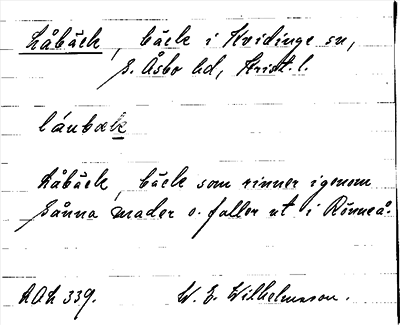 Låbäck, bäck i Kvidinge sn,
S. Åsbo hd, Krist. l.
låubæk
Låbäck, bäck som rinner igenom
Sånna mader o. faller ut i Rönneå.
LAL 339. W. E. Wilhelmsson.